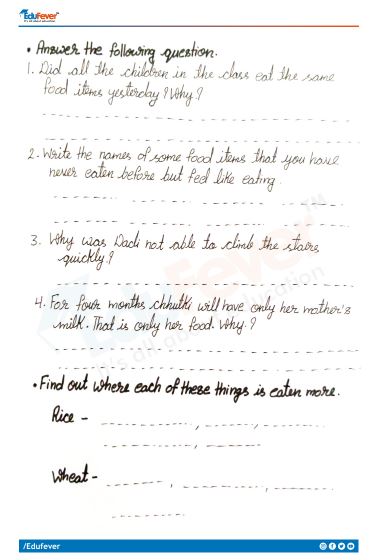 EduFever
It's all about education
• Answer the following question.
1. Did all the children in the class eat the same
food items yesterday? Why?
2. Write the names of some food items that you have
never eaten before but feel like eating.
3. Why was Dadi not able to climb the stairs
quickly?
4. For four months chhutki will have only her mother's
milk. That is only her food. Why?
• Find out where each of these things is eaten more.
Rice - , ,
,
Wheat - , ,
/Edufever